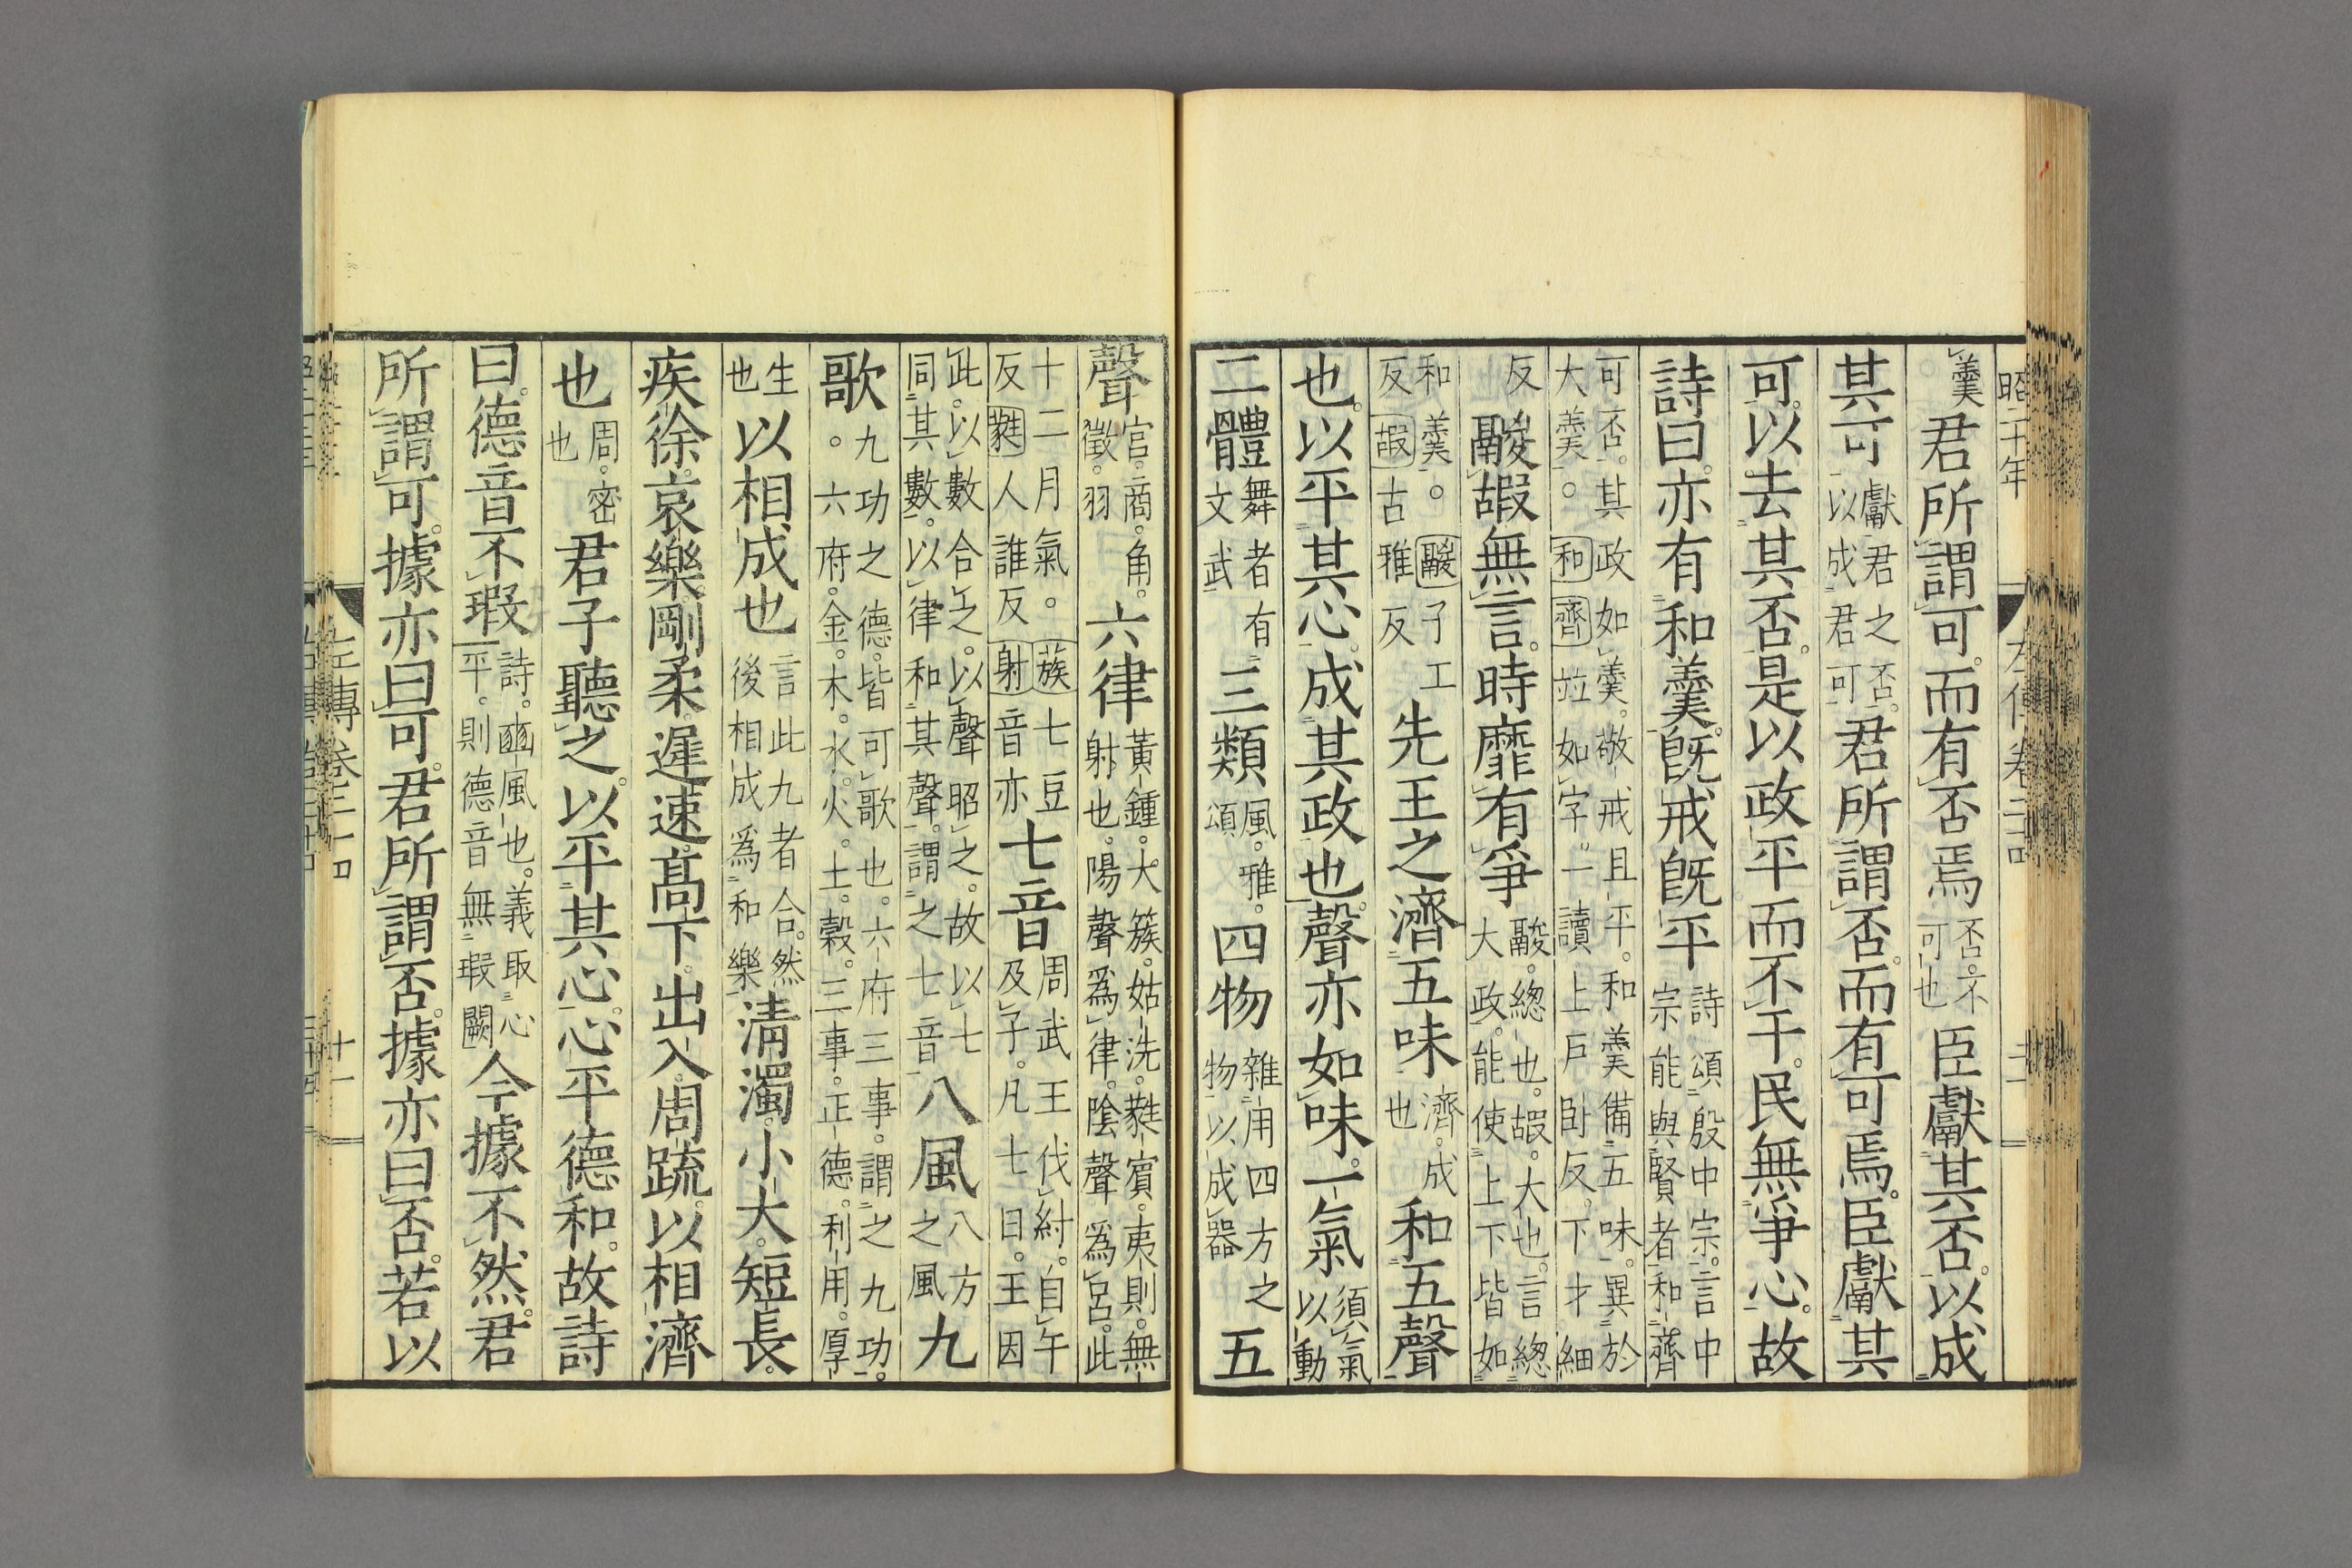 昭二十年
左傳卷二十四
羹君所謂可而有否焉否不可也臣獻其否以成
其可獻君之否以成君可君所謂否而有可焉臣獻其
可以去其否是以政平而不干民無爭心故
詩曰亦有和羹既戒既平詩頌殷中宗言中宗能與賢者和齊
可否其政如羹敬戒且平和羹備五味異於大羹和齊竝如字一讀上戶卧反下才細
反鬷嘏無言時靡有爭鬷總也嘏大也言總大政能使上下皆如
和羹鬷子工反嘏古雅反先王之濟五味濟成也和五聲
也以平其心成其政也聲亦如味一氣須氣以動
二體舞者有文武三類風雅頌四物雜用四方之物以成器五
聲宮商角徵羽六律黃鍾大簇姑洗蕤賓夷則無射也陽聲爲律陰聲爲呂此
十二月氣蔟七豆反蕤人誰反射音亦七音周武王伐紂自午及子凡七日王因
此以數合之以聲昭之故以七同其數以律和其聲謂之七音八風八方之風九
歌九功之德皆可歌也六府三事謂之九功六府金木水火土穀三事正德利用厚
生也以相成也言此九者合然後相成爲和樂淸濁小大短長
疾徐哀樂剛柔遲速高下出入周疏以相濟
也周密也君子聽之以平其心心平德和故詩
曰德音不瑕詩豳風也義取心平則德音無瑕闕今據不然君
所謂可據亦曰可君所謂否據亦曰否若以
左傳卷二十四
十一